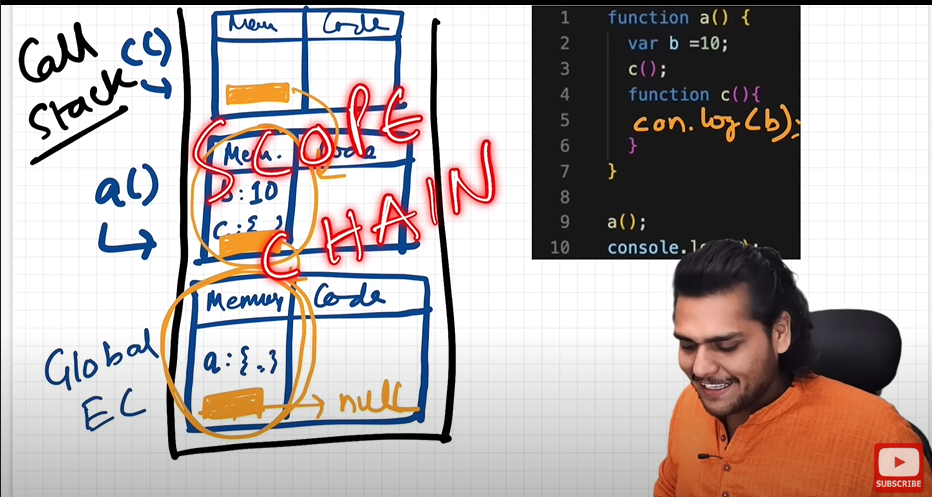 Call
Stack
c()
Mem Code
a()
Mem. Code
b: 10
c: {
SCOPE
CHAIN
Global
EC
Memory Code
a: {..}
null
1 function a() {
2 var b =10;
3 c();
4 function c(){
5 con.log(b);
6 }
7 }
8
9 a();
10 console.
SUBSCRIBE